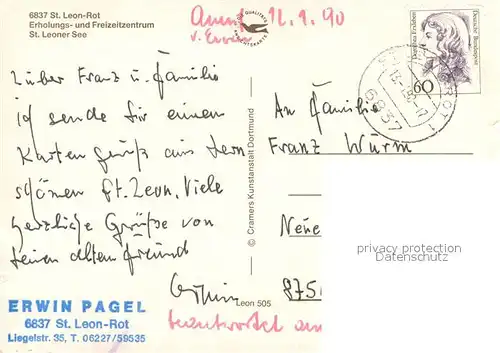 6837 St. Leon-Rot
Erholungs- und Freizeitzentrum
St. Leoner See
12.9.90
v. Erwin
Deutsche Bundespost
Dorothea Erxleben
60
6837
ROT 1
Lieber Franz u. Familie
ich sende Dir einen
Karten gruß aus dem
schönen St. Leon. Viele
herzliche Grüße von
deinen alten Freund
Erwin
An Familie
Franz Wurm
Neue
875
© Cramers Kunstanstalt Dortmund
Leon 505
privacy protection
Datenschutz
ERWIN PAGEL
6837 St. Leon-Rot
Liegelstr. 35, T. 06227/59535
beantwortet am